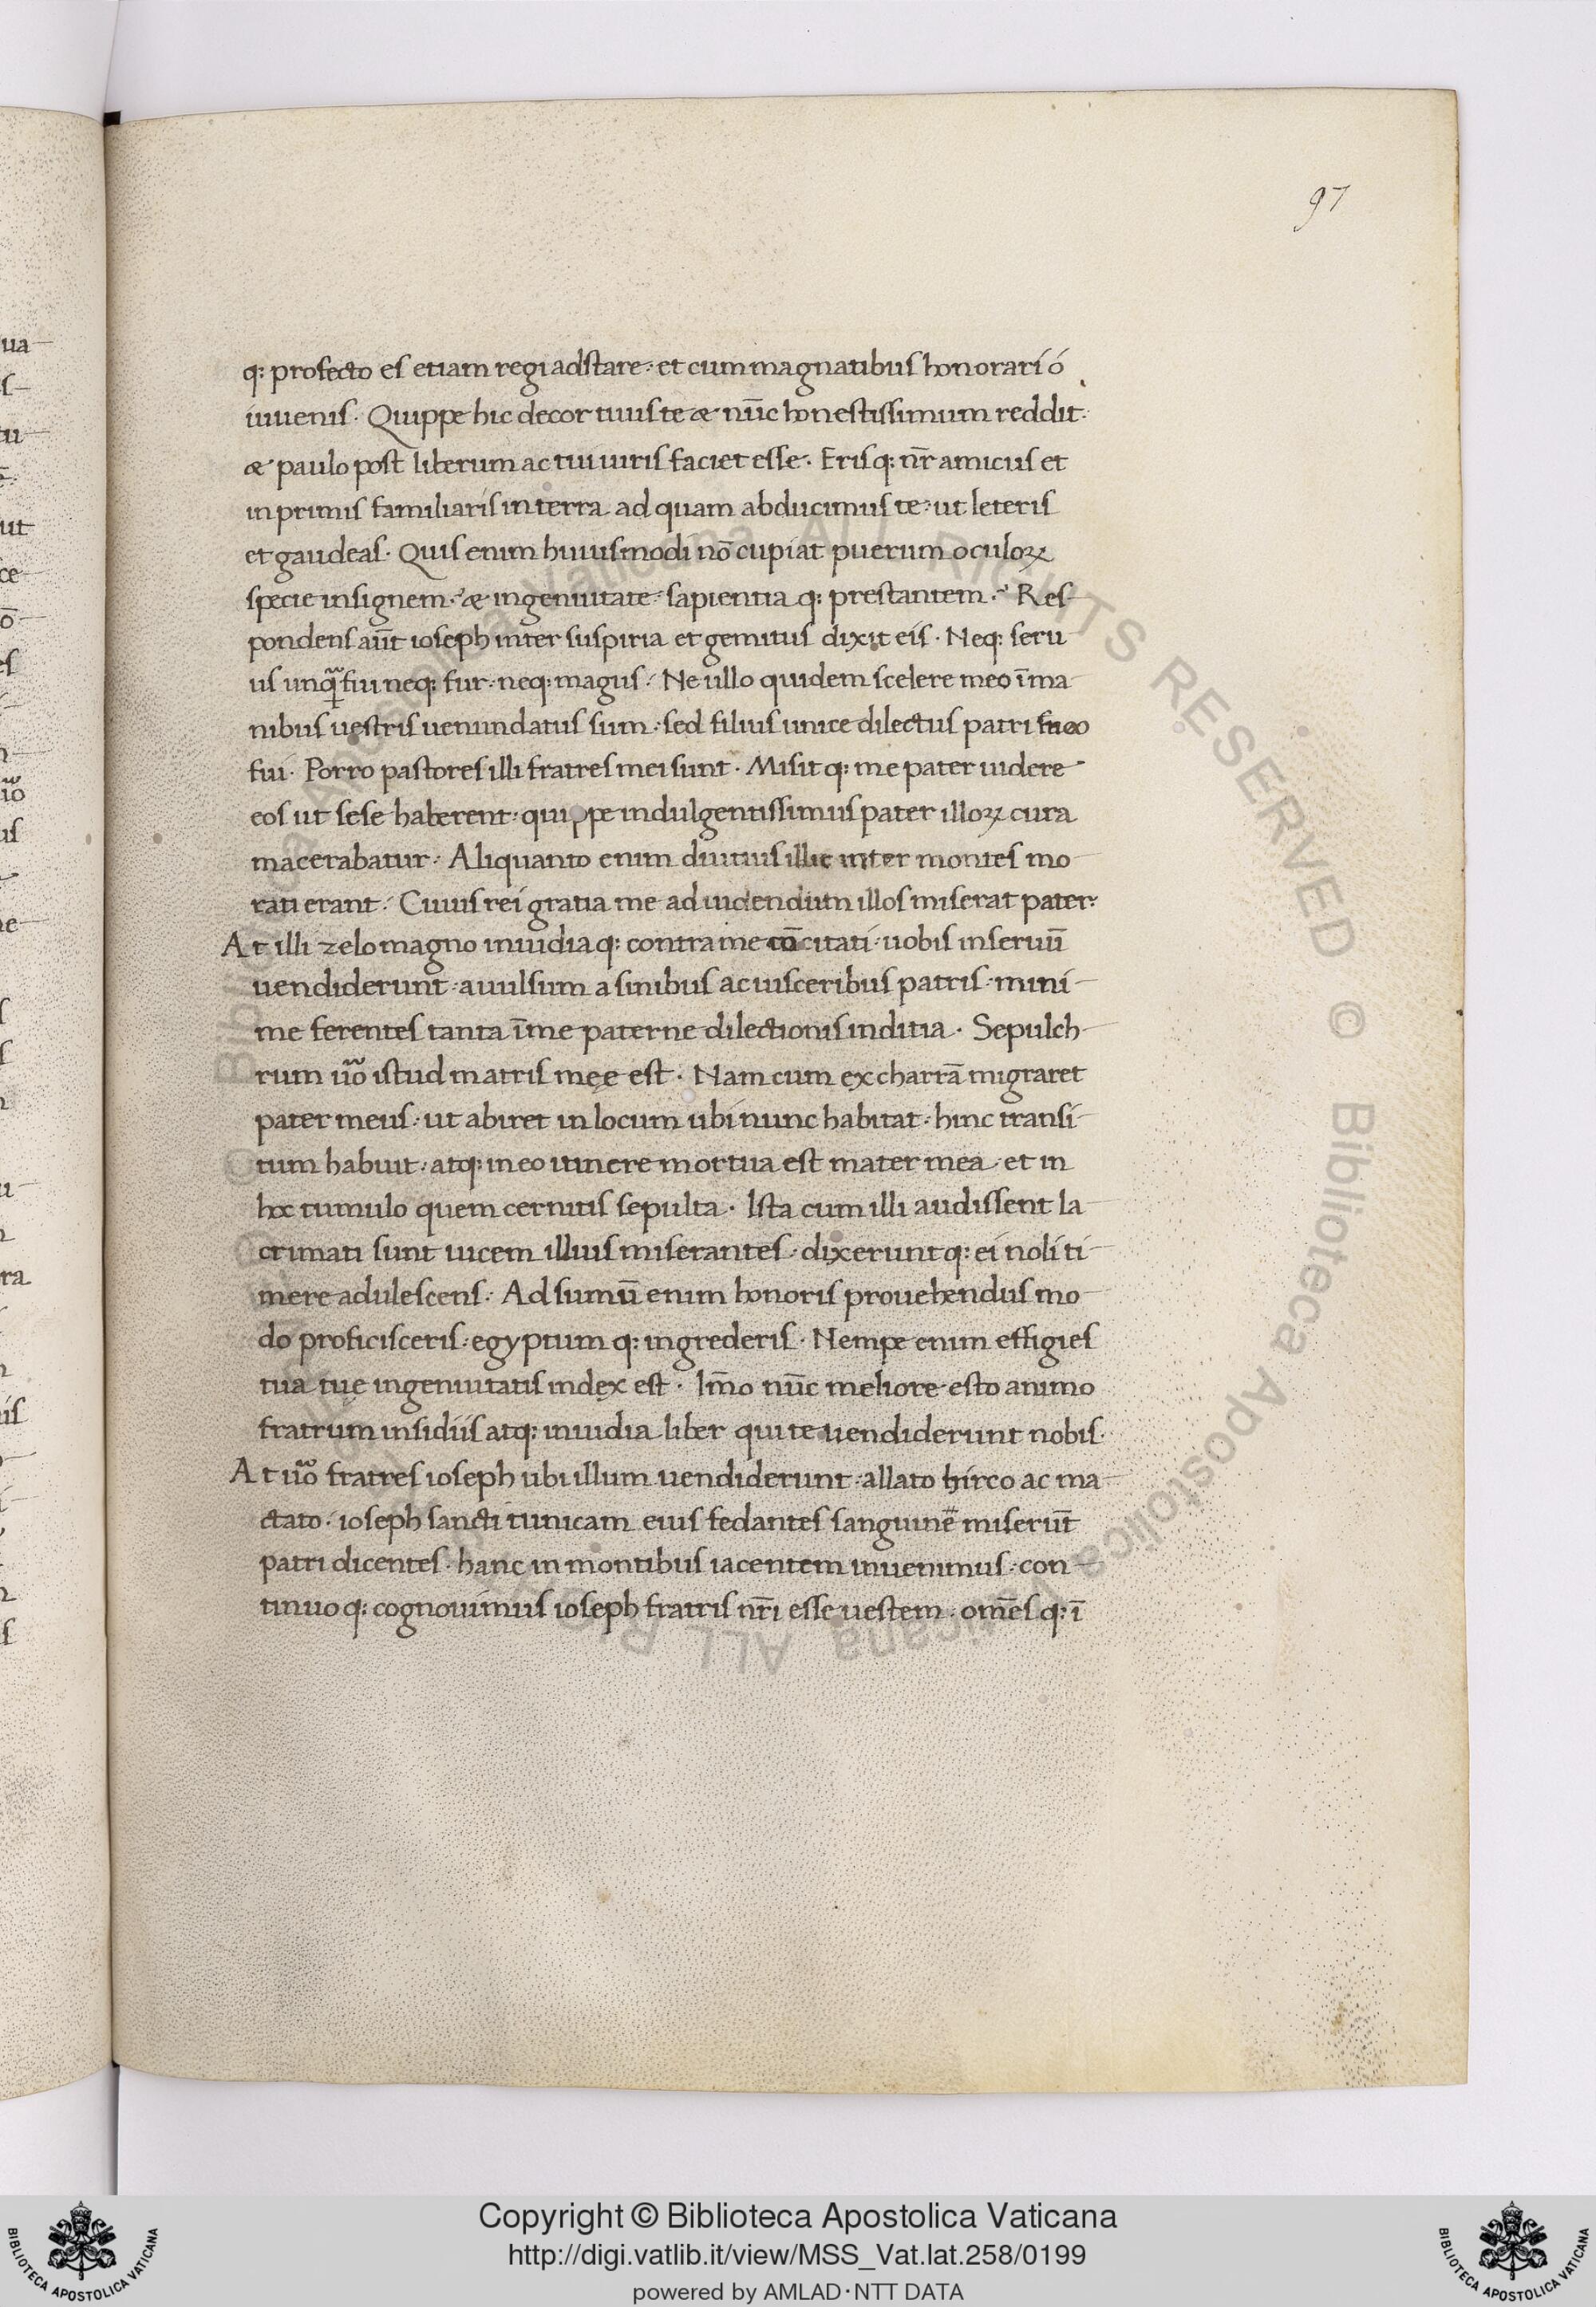 97
q: profecto es etiam regi adstare: et cum magnatibus honorari ó
iuuenis. Quippe hic decor tuus te & nūc honestissimum reddit.
& paulo post liberum ac tui iuris faciet esse. Erisq: nr̄ amicus et
inprimis familiaris in terra ad quam abducimus te: ut leteris
et gaudeas. Quis enim huiusmodi nō cupiat puerum oculoꝝ
specie insignem: & ingenuitate: sapientia q: prestantem. Res
pondens aūt ioseph inter suspiria et gemitus dixit eis. Neq: seru
us unq̃ fui neq: fur: neq: magus: Ne ullo quidem scelere meo ī ma
nibus uestris uenundatus sum: sed filius unice dilectus patri meo
fui. Porro pastores illi fratres mei sunt. Misit q: me pater uidere
eos ut sese haberent: quippe indulgentissimus pater illoꝝ cura
macerabatur: Aliquanto enim diutius illic inter montes mo
rati erant: Cuius rei gratia me ad uidendum illos miserat pater:
At illi zelo magno inuidiaq: contra me cōcitati: uobis in seruū
uendiderunt: auulsum a sinibus ac uisceribus patris: mini
me ferentes tanta ī me paterne dilectionis inditia. Sepulch
rum uō istud matris meę est. Nam cum ex charrā migraret
pater meus: ut abiret in locum ubi nunc habitat: hinc transi
tum habuit: atq: in eo itinere mortua est mater mea et in
hoc tumulo quem cernitis sepulta. Ista cum illi audissent la
crimati sunt uicem illius miserantes: dixerunt q: ei noli ti
mere adulescens: Ad sumū enim honoris prouehendus mo
do proficisceris: egyptum q: ingrederis. Nempe enim effigies
tua tue ingenuitatis index est. Im̄o nūc meliore esto animo
fratrum insidiis atq: inuidia liber qui te uendiderunt nobis.
At uō fratres ioseph ubi illum uendiderunt: allato hirco ac ma
ctato: ioseph sancti tunicam eius fedantes sanguinē miserūt
patri dicentes: hanc in montibus iacentem inuenimus: con
tinuo q: cognouimus ioseph fratris nr̄i esse uestem: om̄es q: ī
Copyright © Biblioteca Apostolica Vaticana
http://digi.vatlib.it/view/MSS_Vat.lat.258/0199
powered by AMLAD·NTT DATA